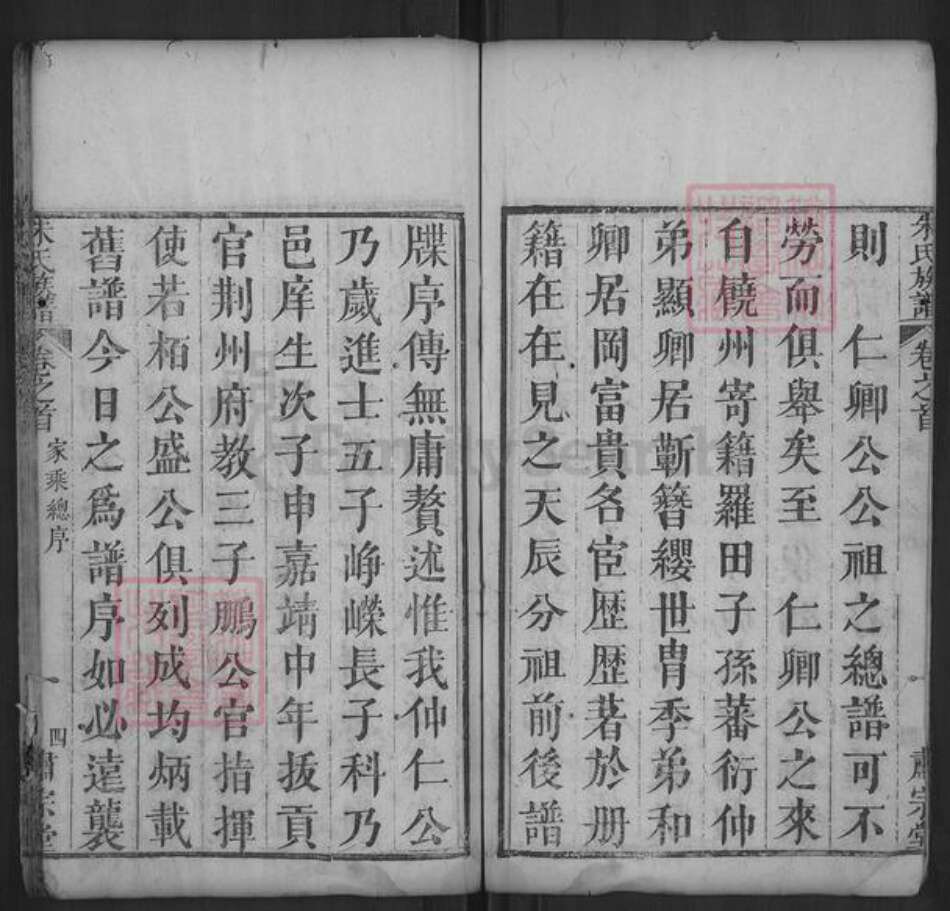 朱氏族譜 卷之首 肅宗堂
則 仁卿公公祖之總譜可不
勞而俱舉矣至 仁卿公之來
自饒州寄籍羅田子孫蕃衍仲
弟顯卿居蘄簪纓世胄季弟和
卿居岡富貴名宦歷歷著於册
籍在在見之天辰分祖前後譜
牒序傳無庸贅述惟我仲仁公
乃歲進士五子崢嶸長子科乃
邑庠生次子申嘉靖中年拔貢
官荆州府教三子鵬公官指揮
使若栢公盛公俱列成均炳載
舊譜今日之爲譜序如必遠襲
朱氏族譜 卷之首 家乘總序 四 肅宗堂